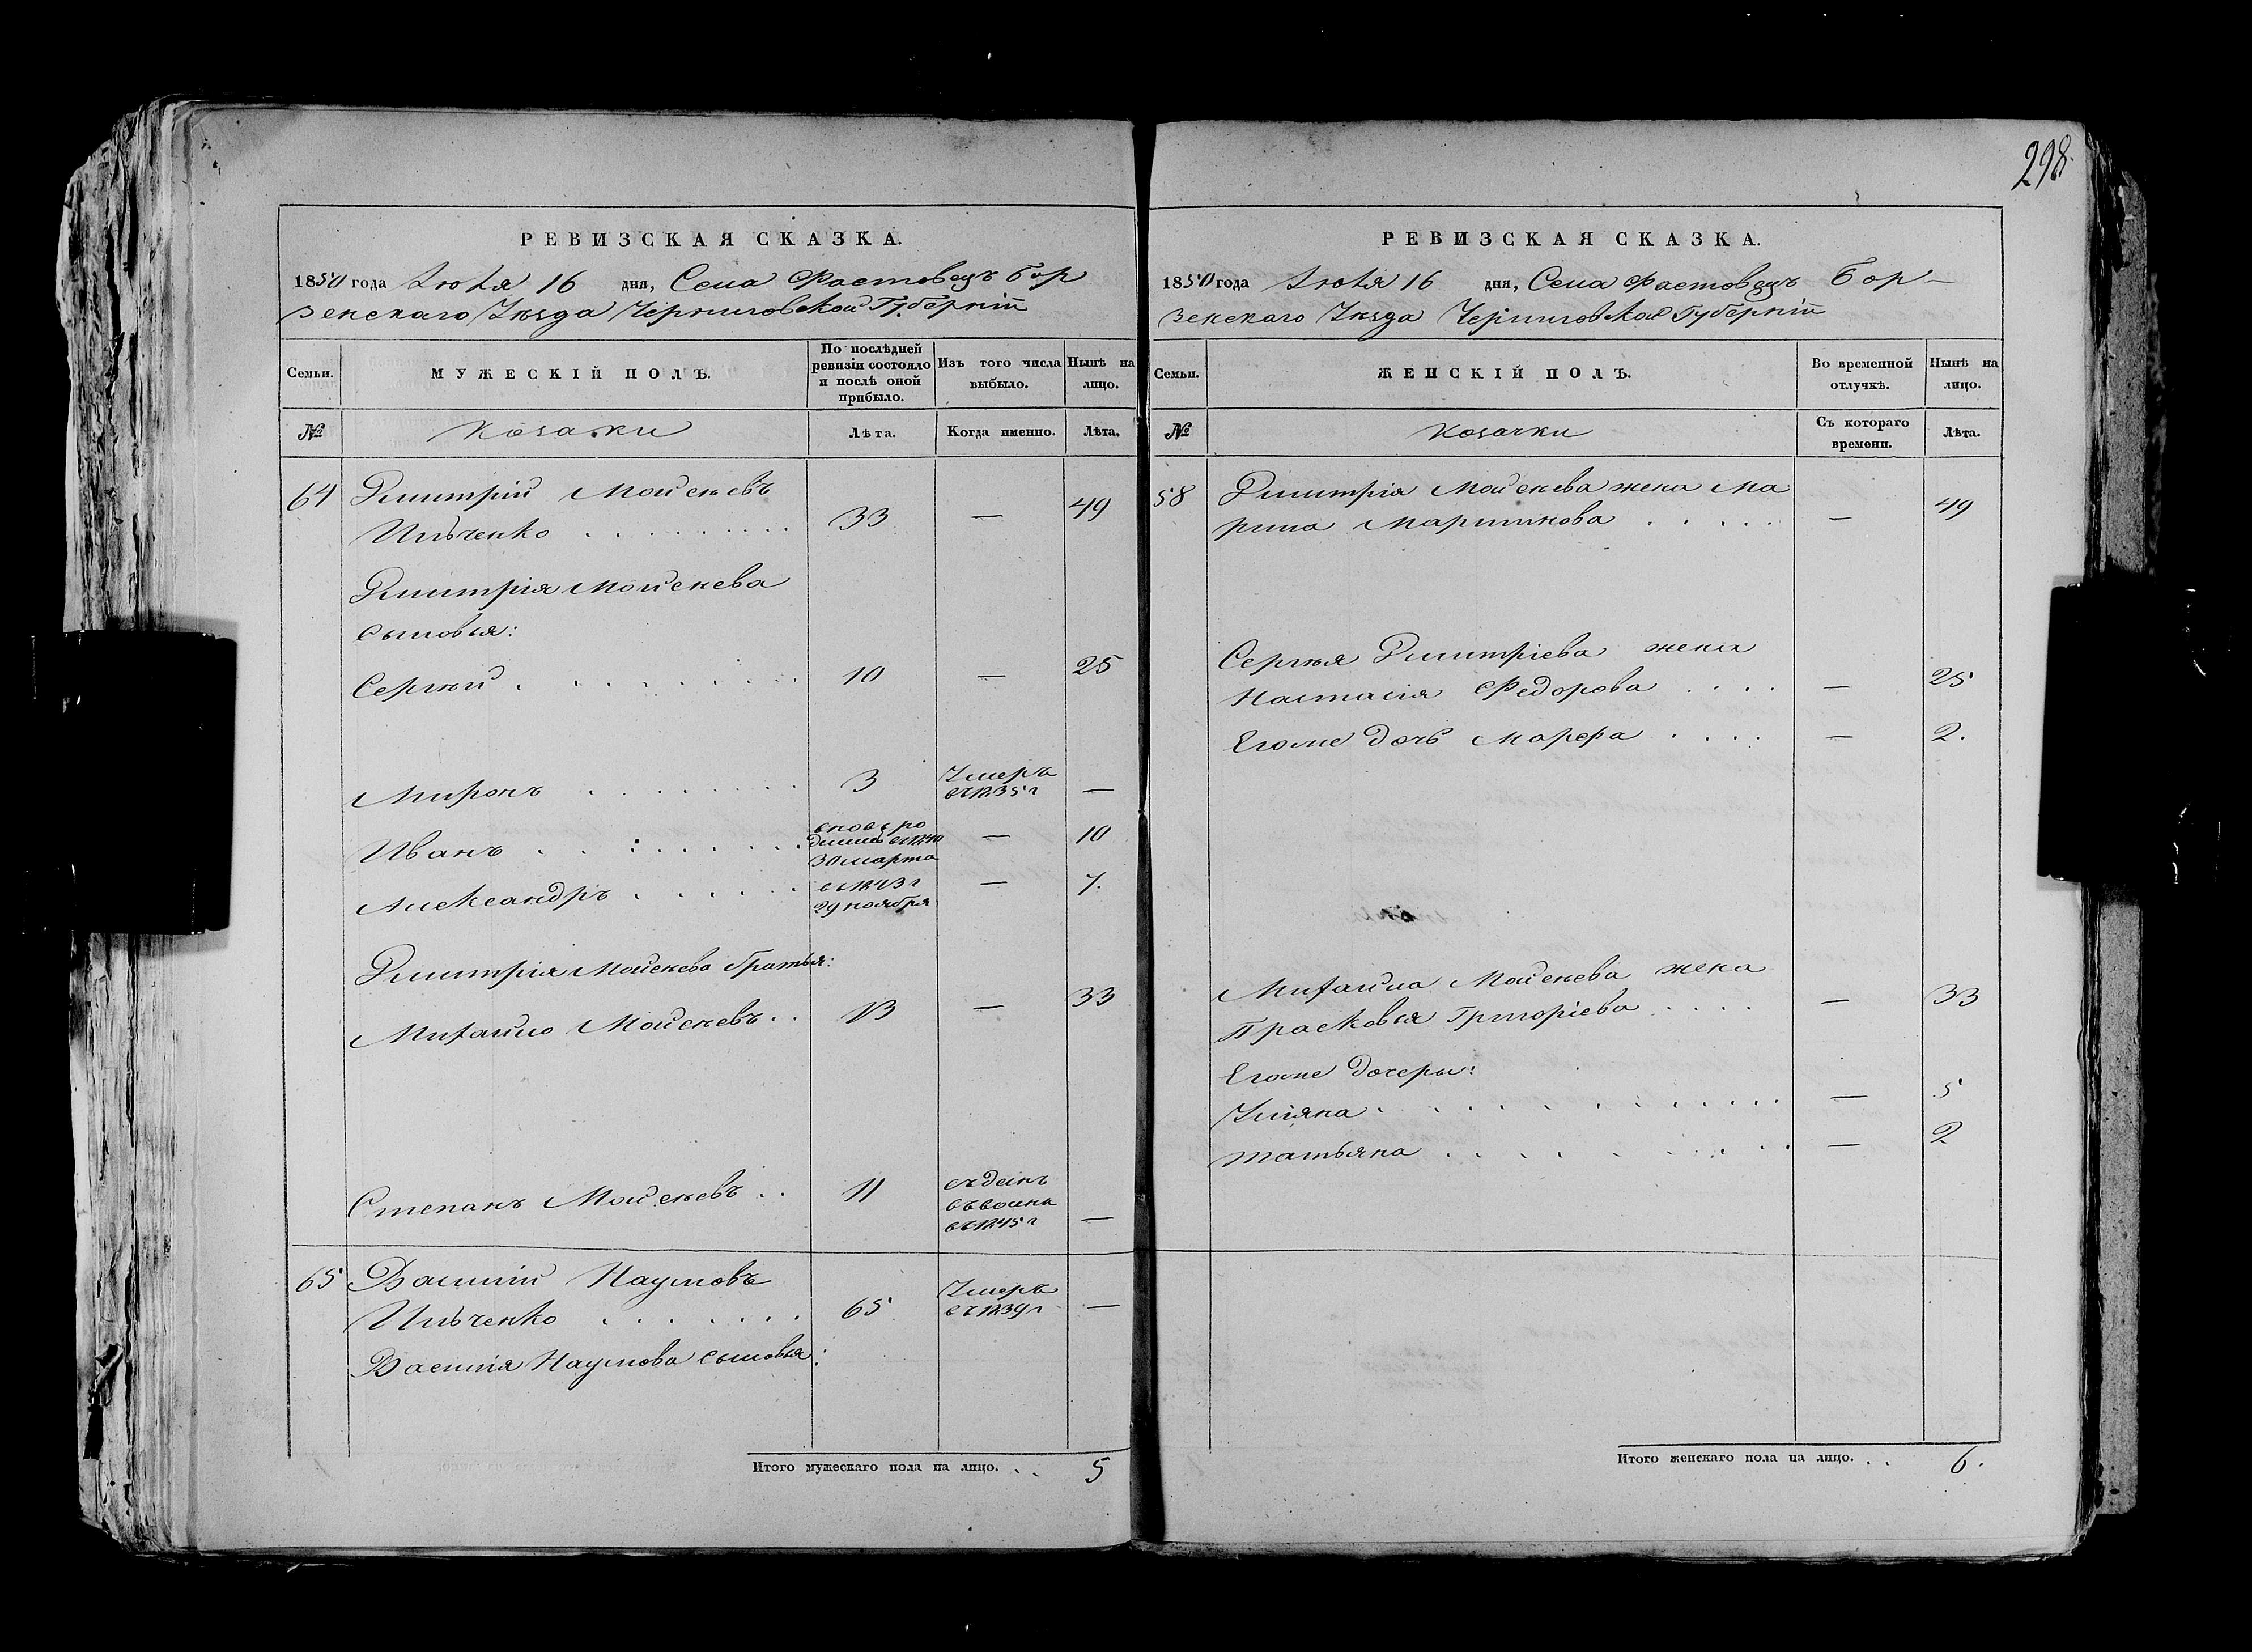 298.
РЕВИЗСКАЯ СКАЗКА.
1850 года Июля 16 дня, Села Фастовецъ Бор
зенскаго Уѣзда Черниговской Губерніи
Семьи.
МУЖЕСКІЙ ПОЛЪ.
По послѣдней
ревизіи состояло
и послѣ оной
прибыло.
Изъ того числа
выбыло.
Нынѣ на
лицо.
№
Козаки
Лѣта.
Когда именно.
Лѣта.
64 Дмитрій Мойсѣевъ
Ильченко . . . . . . . . . 33 — 49
Дмитрія Мойсѣева
сыновья:
Сергѣй . . . . . . . . . 10 — 25
Миронъ . . . . . . . . 3 Умеръ
въ 1835 г —
Иванъ . . . . . . . . вновь ро
дился въ 1840
30 марта — 10
Александръ . . . . . . въ 1843 г
29 ноября — 7.
Дмитрія Мойсѣева братья:
Михайло Мойсѣевъ . . 13 — 33
Степанъ Мойсѣевъ . . 11 сданъ
въ 1845 г —
65 Василій Наумовъ
Ильченко . . . . . . . 65 Умеръ
въ 1839 г —
Василія Наумова сыновья:
Итого мужескаго пола на лицо. . . 5
РЕВИЗСКАЯ СКАЗКА.
1850 года Июля 16 дня, Села Фастовецъ Бор-
зенскаго Уѣзда Черниговской Губерніи
Семьи.
ЖЕНСКІЙ ПОЛЪ.
Во временной
отлучкѣ.
Нынѣ на
лицо.
№
Козачки
Съ котораго
времени.
Лѣта.
58 Дмитрія Мойсѣева жена Ма
рина Мартинова . . . . . — 49
Сергѣя Дмитріева жена
Настасія Федорова . . . . — 25
Егоже дочь Марфа . . . . — 2.
Михайла Мойсѣева жена
Прасковья Григоріева . . . . — 33
Егоже дочери:
Уліяна . . . . . . . . . . . . — 5
Татьяна . . . . . . . . . — 2
Итого женскаго пола на лицо. . . 6.